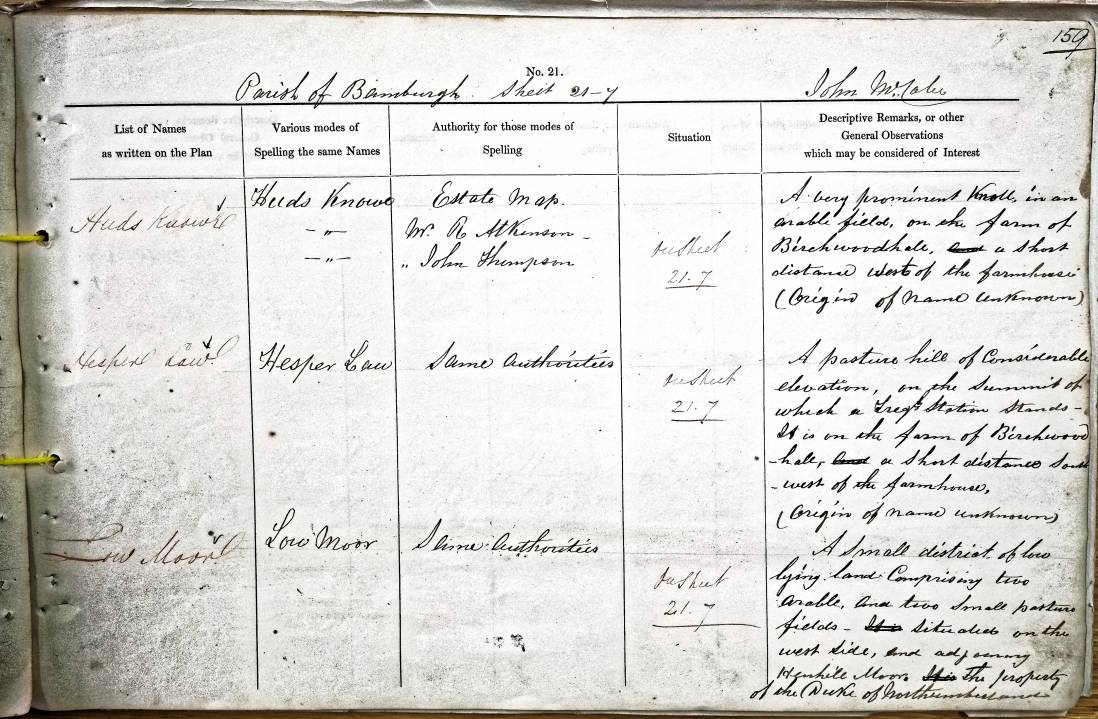 159
No. 21.
Parish of Bamburgh. Sheet 21-7 John McCabe
List of Names
as written on the Plan
Various modes of
Spelling the same Names
Authority for those modes of
Spelling
Situation
Descriptive Remarks, or other
General Observations
which may be considered of Interest
Huds Knowe
Huds Knowe
-"-
-"-
Estate Map.
Mr. R Atkinson
" John Thompson
On Sheet
21.7
A very prominent Knoll, in an
arable field, on the farm of
Birchwoodhall, and a short
distance west of the farmhouse
(Origin of name unknown)
Hesper Law
Hesper Law
Same Authorities
On Sheet
21.7
A pasture hill of Considerable
elevation, on the Summit of
which a Trigl Station stands -
It is on the farm of Birchwood
-hall, and a short distance South
-west of the farmhouse,
(Origin of name unknown)
Low Moor
Low Moor
Same Authorities
On Sheet
21.7
A Small district of low
lying land Comprising two
arable, and two Small pasture
fields - It is Situated on the
west side, and adjoining
Moor It is the property
of the Duke of Northumberland